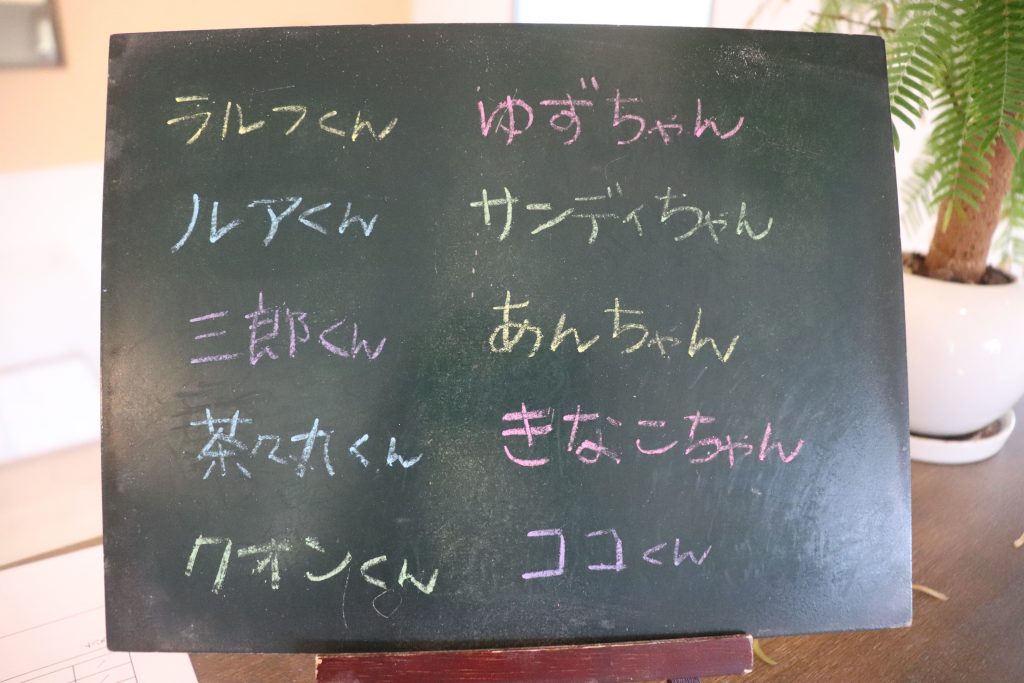 ラルフくん
ルアくん
三郎くん
茶々丸くん
クオンくん
ゆずちゃん
サンディちゃん
あんちゃん
きなこちゃん
ココくん